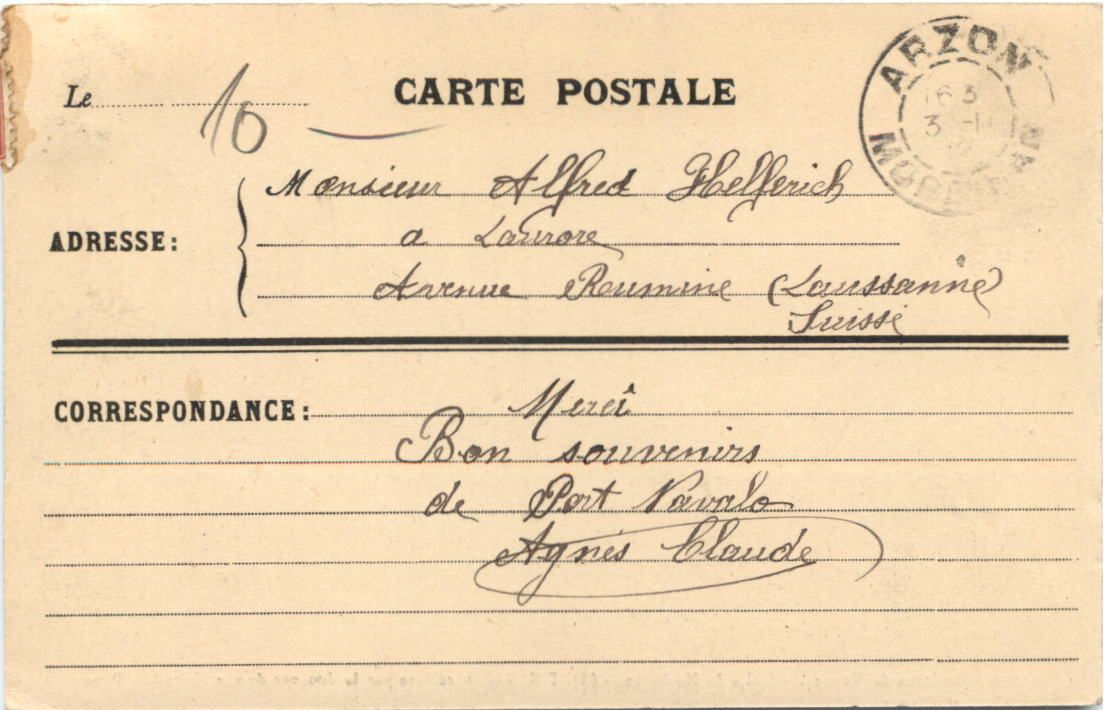 Le
10
CARTE POSTALE
ARZON
MORBIHAN
ADRESSE:
Monsieur Alfred Helferich
a Laurore
Avenue Rumine (Laussanne)
Suisse
CORRESPONDANCE:
Merci
Bon souvenirs
de Port Navalo
Agnés Claude